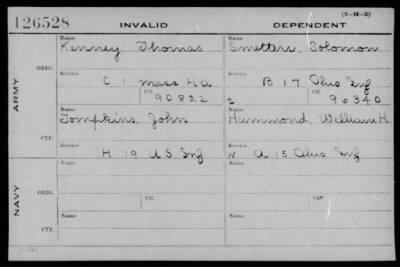 (3-H-5)
126528 INVALID DEPENDENT
Name Name
Kenney, Thomas Smetters, Solomon
ORIG.
Service Service
C 1 Mass H A B 17 Ohio Inf
Ctf. Ctf.
90822 C 90340
ARMY
Name Name
Tompkins, John Hammond, William H.
CTF.
Service Service
H 19 U S Inf N A 15 Ohio Inf
Name Name
ORIG.
Service Ctf. Service Ctf.
NAVY
Name Name
CTF.
Service Service